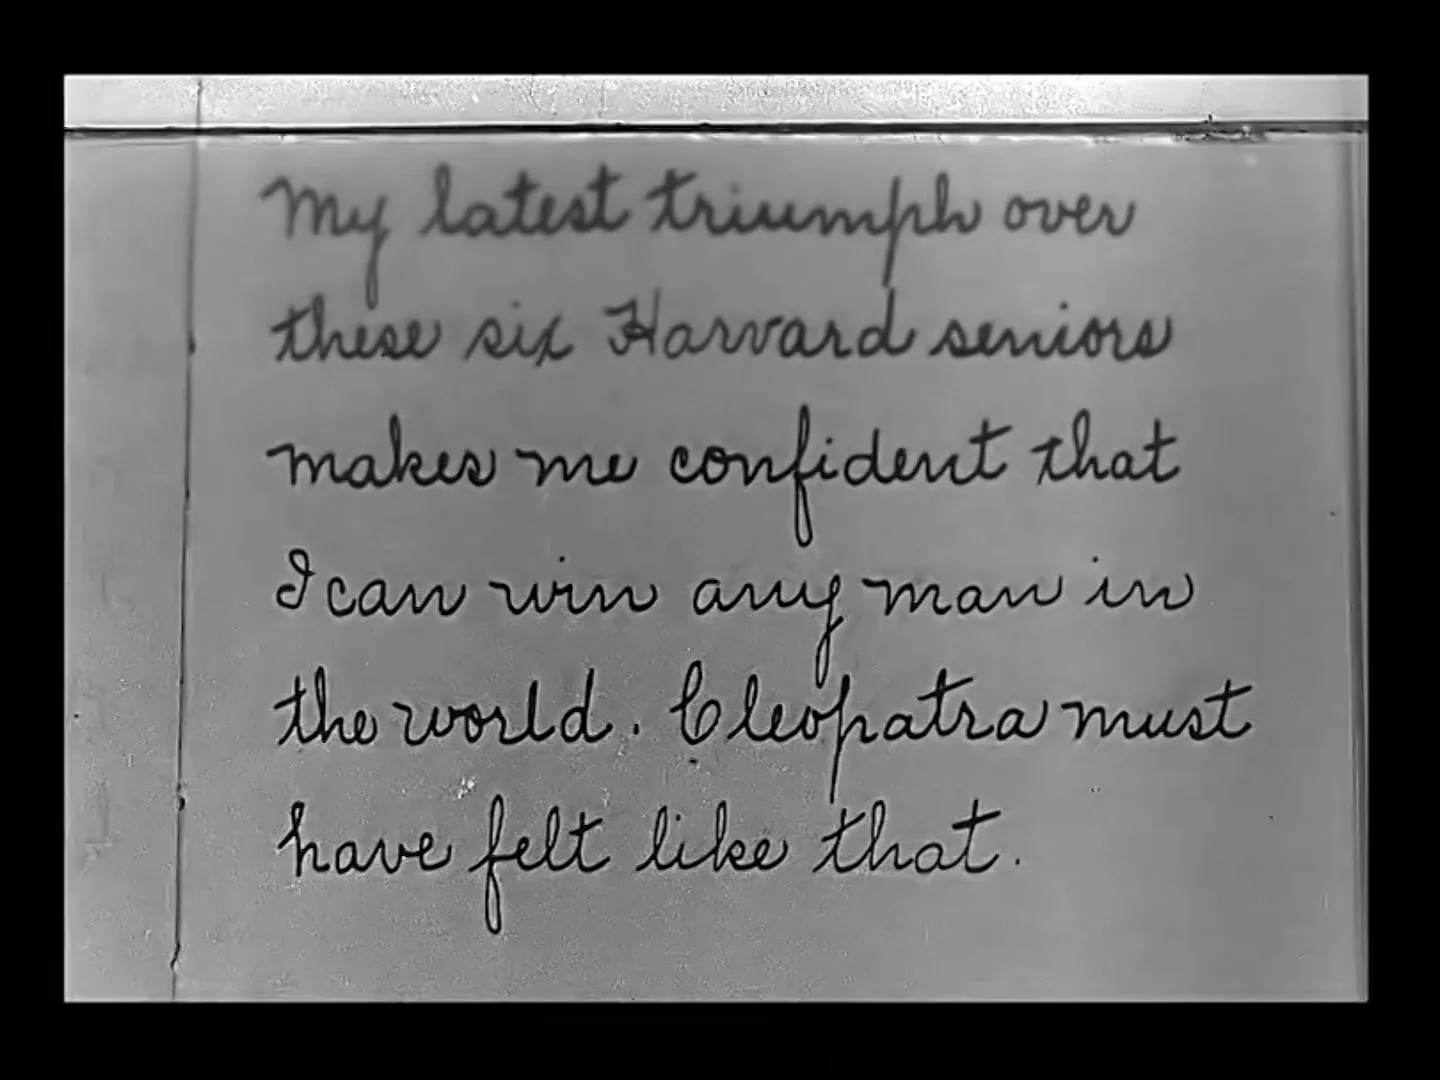 My latest triumph over
these six Harvard seniors
makes me confident that
I can win any man in
the world. Cleopatra must
have felt like that.